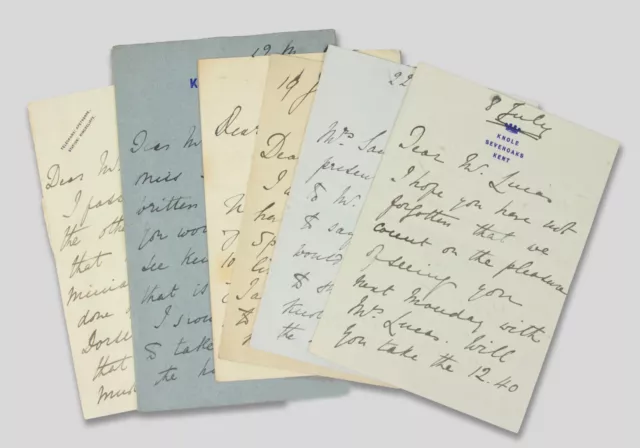 Dear Mr.
I pass
the oth
that
minia
done
Dorse
that
mus
19 M
K
Dear M
miss
written
you wou
see Ken
that is
I shou
to take
the ho
Dear
19 J
Dear
I a
ha
Sp
li
I a
22
Mrs Sac
presen
to Mr.
& say
would
& st
Knol
the
8 July
KNOLE
SEVENOAKS
KENT
Dear Mr. Lucas
I hope you have not
forgotten that we
count on the pleasure
of seeing you
next Monday with
Mrs. Lucas. Will
you take the 12.40